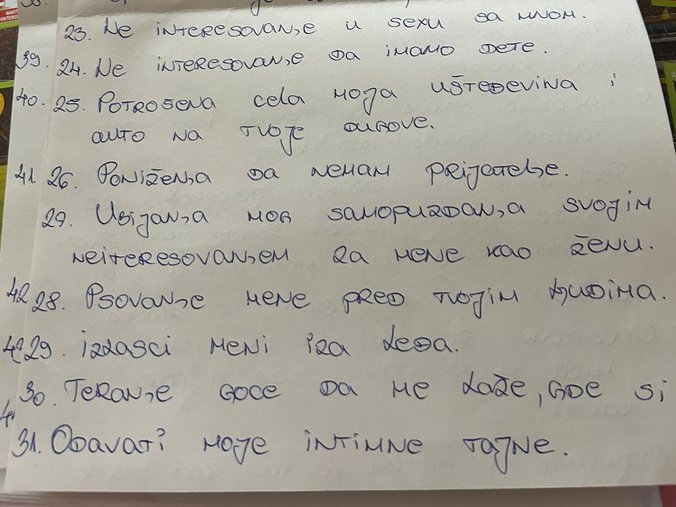 23. Ne interesovanje u sexu sa mnom.
39. 24. Ne interesovanje da imamo dete.
40. 25. Potrosena cela moja uštedevina i
auto na tvoje dugove.
41. 26. Poniženja da nemam prijatelje.
27. Ubijanja mog samopuzdanja svojim
neiteresovanjem za mene kao ženu.
42 28. Psovanje mene pred tvojim ljudima.
29. izlasci meni iza leđa.
30. Teranje Goce da me laže, gde si
31. Odavati moje intimne tajne.